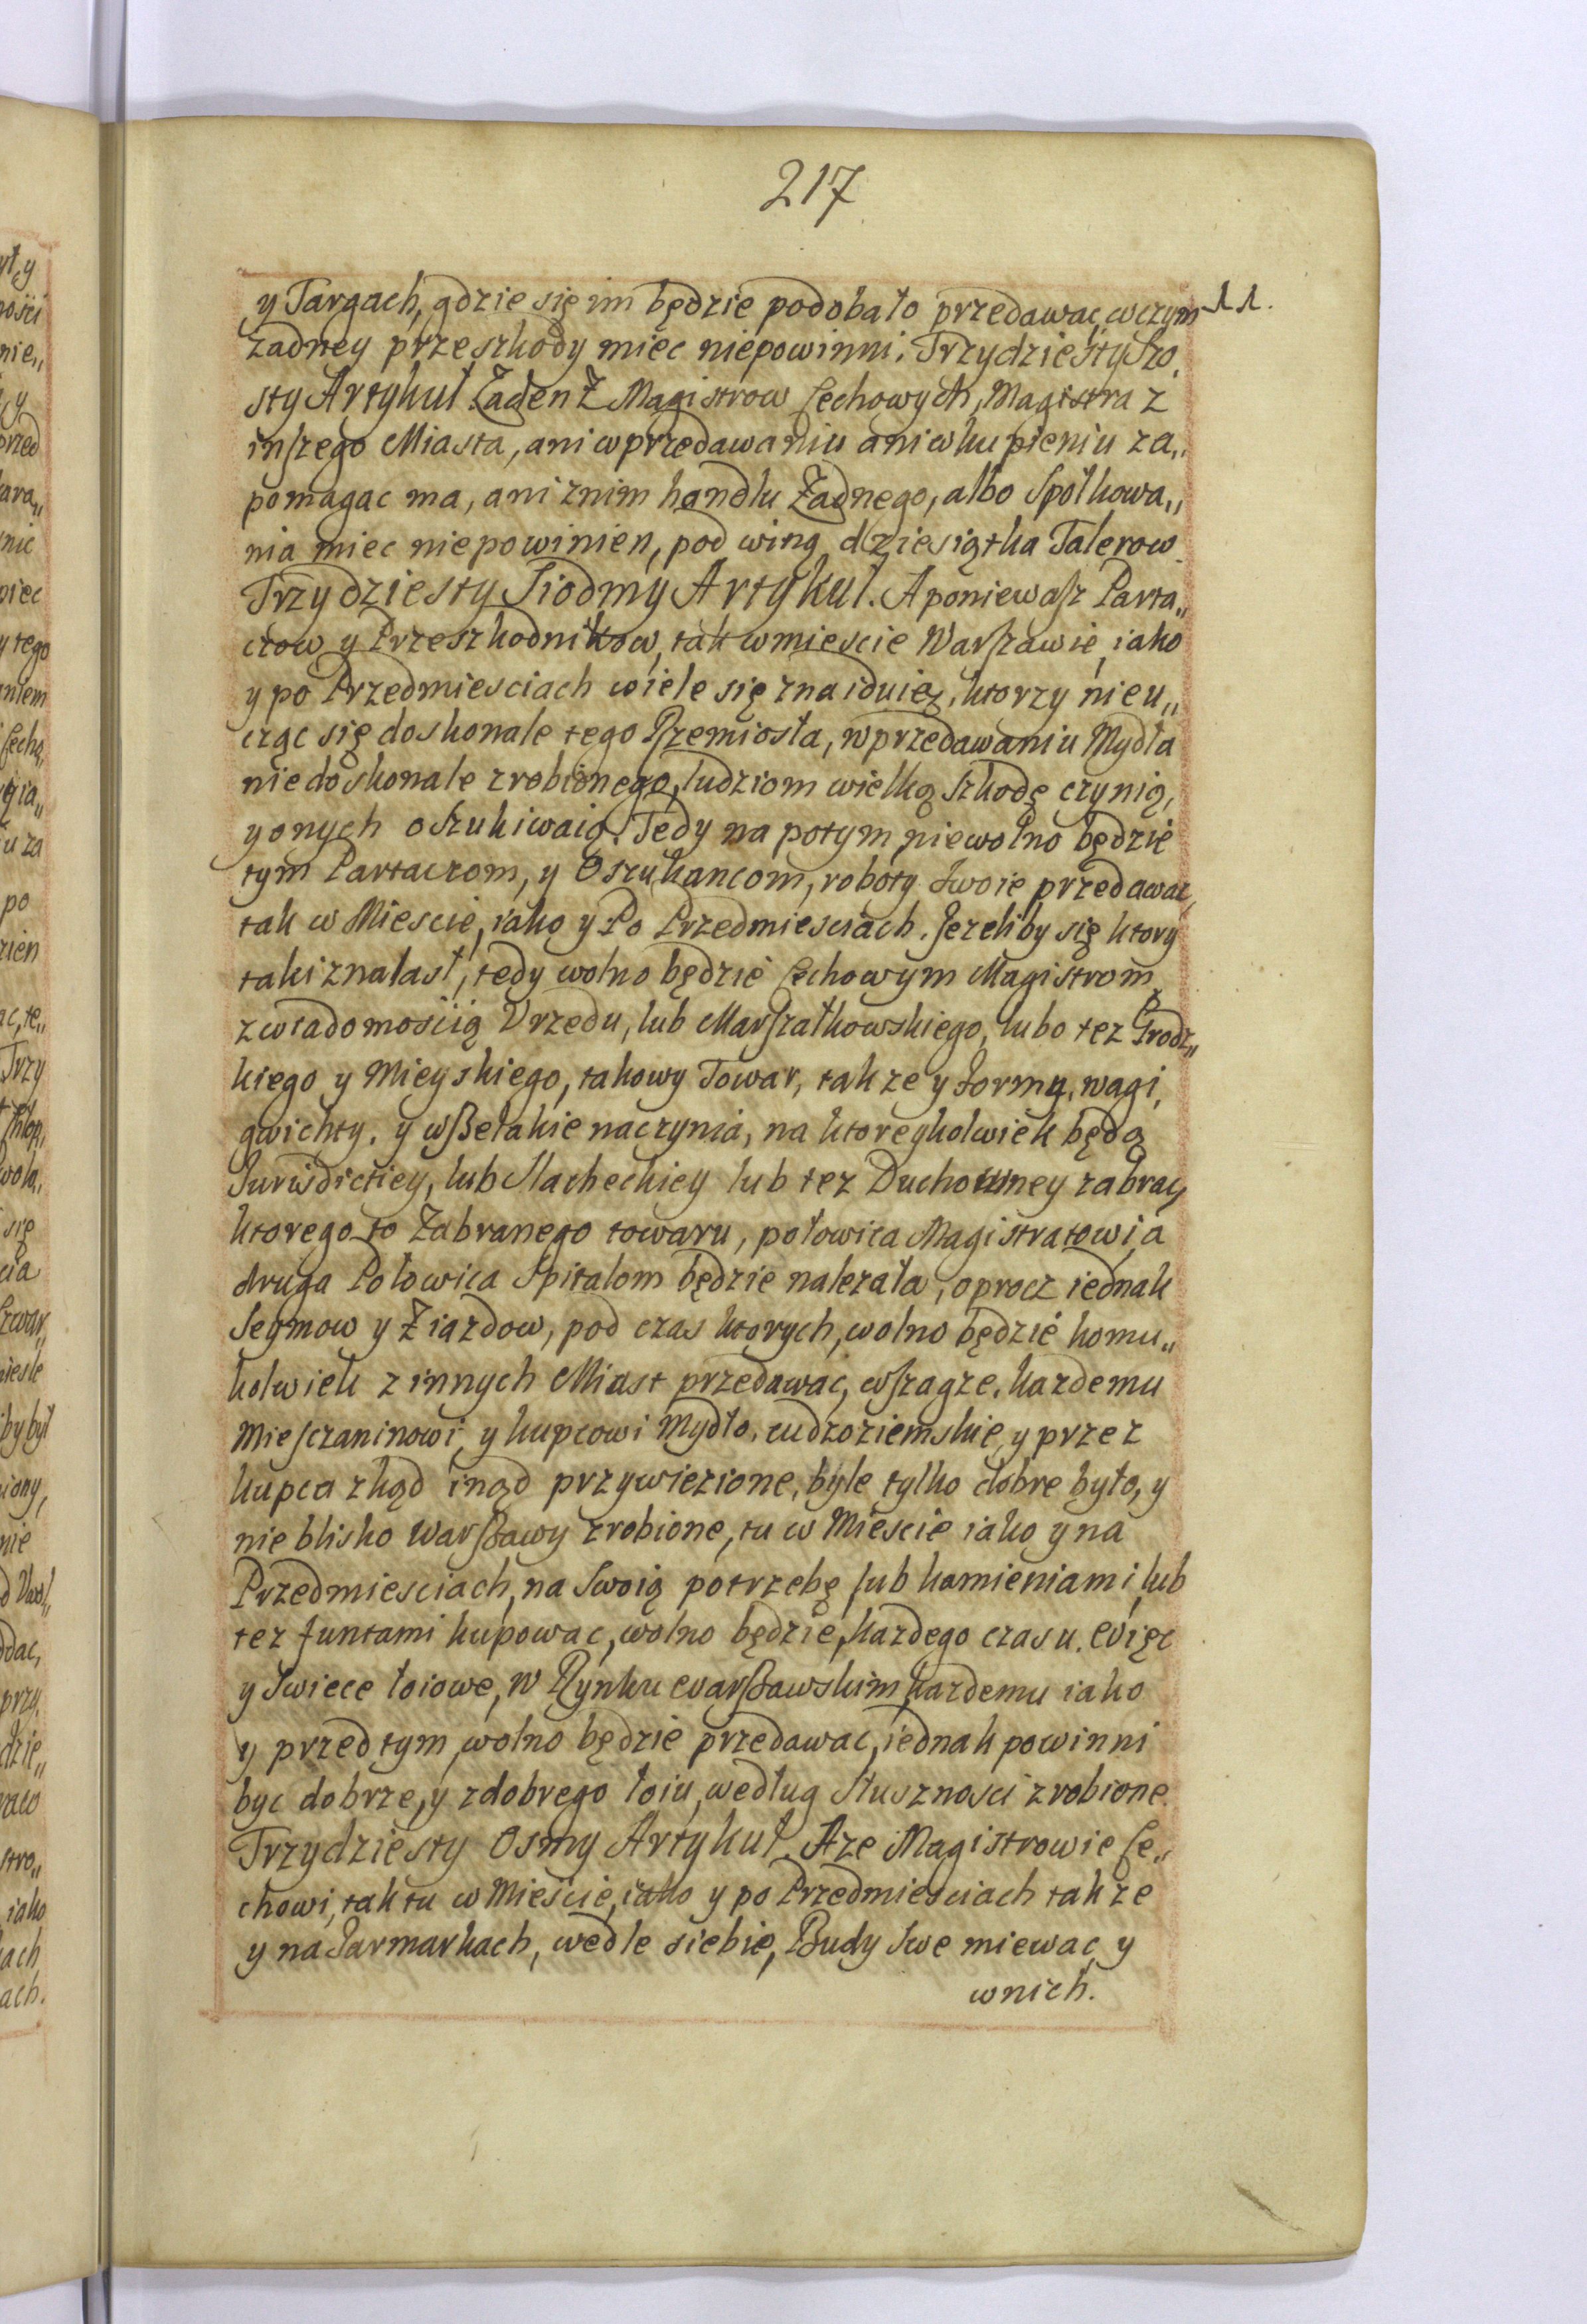 217
y Targach, gdzie się im będzie podobało przedawac, wczym 11.
zadney przeszkody miec niepowinni. Trzydziesty Szo,
sty Artykuł. Zaden Z Magistrow Cechowych, Magistra z
inszego Miasta, ani wprzedawaniu ani wkupieniu za„
pomagac ma, ani znim handlu Zadnego, albo Społkowa„
nia miec niepowinien, pod winą dziesiątka Talerow.
Trzydziesty Siodmy Artykuł. A poniewasz Parta„
czow y Przeszkodnikow, tak wmiescie Warszawie, iako
y po Przedmiesciach wiele się znaiduię, ktorzy nieu„
cząc się doskonale tego Rzemiosła, wprzedawaniu Mydła
niedoskonale zrobionego, ludziom wielką szkodę czynią,
yonych oszukiwaią. Tedy na potym niewolno będzie
tym Partaczom, y Oszukancom, roboty swoie przedawac,
tak w Miescie, iako y Po Przedmiesciach. Jezeliby się ktory
taki znalasł, tedy wolno będzie Cechowym Magistrom,
zwiadomoscią Vrzedu, lub Marszałkowskiego, lubo tez Grodz„
kiego y Mieyskiego, takowy Towar, takze y Formy, wagi,
gwichty, y wszelakie naczynia, na ktoreykolwiek będą
Jurisdictiey, lub Slacheckiey lub tez Duchowney zabrac,
ktorego to Zabranego towaru, połowica Magistratowi, a
druga Połowica Spitalom będzie nalezała, oprocz iednak
Seymow y Ziazdow, pod czas ktorych, wolno będzie komu„
kolwiek z innych Miast przedawac, wszagze, kazdemu
Miesczaninowi, y kupcowi Mydło, cudzoziemskie, y przez
kupca zkąd inąd przywiezione, byle tylko dobre było, y
nie blisko Warszawy zrobione, tu w Miescie iako y na
Przedmiesciach, na Swoią potrzebę, lub kamieniami, lub
tez funtami kupowac, wolno będzie, kazdego czasu. Więc
y Swiece łoiowe, w Rynku Warszawskim, kazdemu iako
y przed tym, wolno będzie przedawac, iednak powinni
byc dobrze, y zdobrego łoiu, według Słusznosci zrobione.
Trzydziesty Osmy Artykuł. Aze Magistrowie Ce„
chowi, tak tu w Miescie, iako y po Przedmiesciach takze
y na Jarmarkach, wedle siebie, Budy Swe miewac, y
wnich.